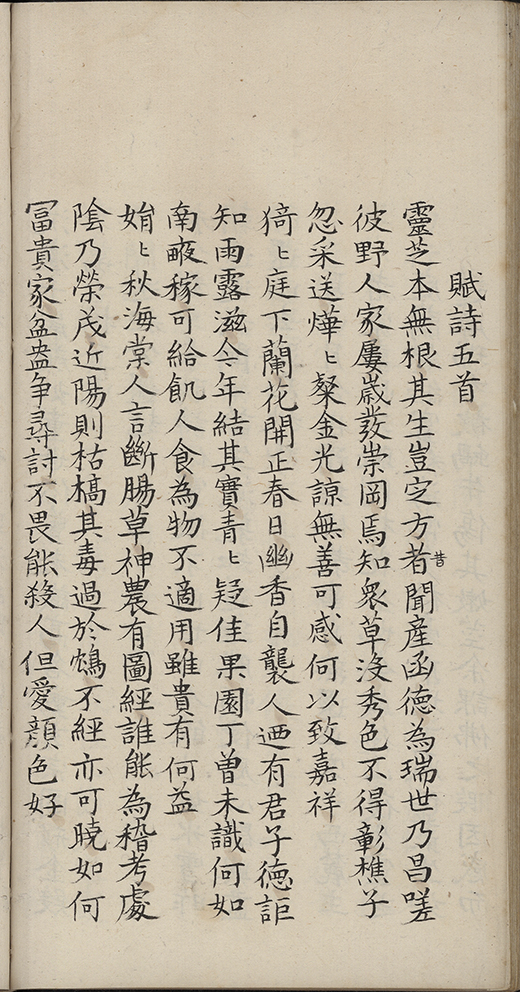 賦詩五首
靈芝本無根其生豈㝎方者昔聞産函德為瑞世乃昌嗟
彼野人家屢歲發崇岡焉知衆草没秀色不得彰樵子
忽采送燁〻粲金光諒無善可感何以致嘉祥
猗〻庭下蘭花開正春日幽香自襲人迺有君子德詎
知雨露滋今年結其實青〻疑佳果園丁曾未識何如
南畮稼可給飢人食為物不適用雖貴有何益
娟〻秋海棠人言斷腸草神農有圖經誰能為稽考處
陰乃榮茂近陽則枯槁其毒過於鴆不經亦可曉如何
冨貴家盆盎争尋討不畏能殺人但愛顔色好